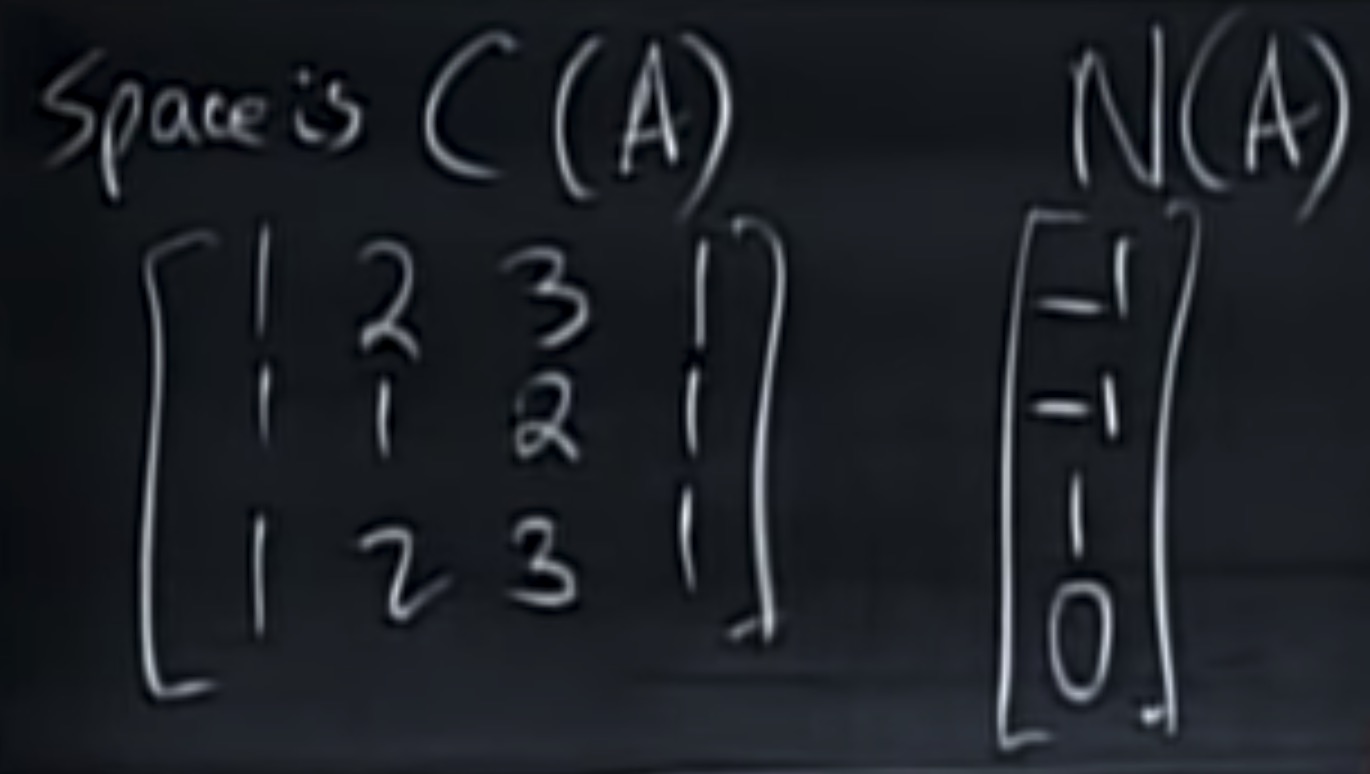 Space is C(A) N(A)
1 2 3 1 -1
1 1 2 1 -1
1 2 3 1 1
0